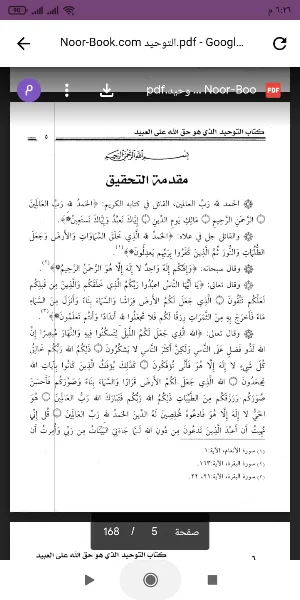 ٦:٢٦ م
Noor-Book.com التوحيد.pdf - Googl...
P
Noor-Boo ... وحيد.pdf
PDF
كتاب التوحيد الذي هو حق الله على العبيد
٥
بسم الله الرحمن الرحيم
مقدمة التحقيق
الحمد لله رب العالمين، القائل في كتابه الكريم: ﴿الحَمْدُ للهِ رَبِّ العَالَمِينَ
الرَّحْمَنِ الرَّحِيمِ مَالِكِ يَوْمِ الدِّينِ إِيَّاكَ نَعْبُدُ وَإِيَّاكَ نَسْتَعِينُ﴾.
والقائل جل في علاه: ﴿الحَمْدُ للهِ الَّذِي خَلَقَ السَّمَاوَاتِ وَالأَرْضَ وَجَعَلَ
الظُّلُمَاتِ وَالنُّورَ ثُمَّ الَّذِينَ كَفَرُوا بِرَبِّهِم يَعْدِلُونَ﴾(١).
وقال سبحانه: ﴿وَإِلَهُكُمْ إِلَهٌ وَاحِدٌ لَا إِلَهَ إِلَّا هُوَ الرَّحْمَنُ الرَّحِيمُ﴾(٢).
وقال تعالى: ﴿يَا أَيُّهَا النَّاسُ اعْبُدُوا رَبَّكُمُ الَّذِي خَلَقَكُمْ وَالَّذِينَ مِنْ قَبْلِكُمْ
لَعَلَّكُمْ تَتَّقُونَ الَّذِي جَعَلَ لَكُمُ الأَرْضَ فِرَاشًا وَالسَّمَاءَ بِنَاءً وَأَنْزَلَ مِنَ السَّمَاءِ
مَاءً فَأَخْرَجَ بِهِ مِنَ الثَّمَرَاتِ رِزْقًا لَكُمْ فَلَا تَجْعَلُوا للهِ أَنْدَادًا وَأَنْتُمْ تَعْلَمُونَ﴾(٣).
وقال تعالى: ﴿اللهُ الَّذِي جَعَلَ لَكُمُ اللَّيْلَ لِتَسْكُنُوا فِيهِ وَالنَّهَارَ مُبْصِرًا إِنَّ
اللهَ لَذُو فَضْلٍ عَلَى النَّاسِ وَلَكِنَّ أَكْثَرَ النَّاسِ لَا يَشْكُرُونَ ذَلِكُمُ اللهُ رَبُّكُمْ خَالِقُ
كُلِّ شَيْءٍ لَا إِلَهَ إِلَّا هُوَ فَأَنَّى تُؤْفَكُونَ كَذَلِكَ يُؤْفَكُ الَّذِينَ كَانُوا بِآيَاتِ اللهِ
يَجْحَدُونَ اللهُ الَّذِي جَعَلَ لَكُمُ الأَرْضَ قَرَارًا وَالسَّمَاءَ بِنَاءً وَصَوَّرَكُمْ فَأَحْسَنَ
صُوَرَكُمْ وَرَزَقَكُمْ مِنَ الطَّيِّبَاتِ ذَلِكُمُ اللهُ رَبُّكُمْ فَتَبَارَكَ اللهُ رَبُّ العَالَمِينَ هُوَ
الحَيُّ لَا إِلَهَ إِلَّا هُوَ فَادْعُوهُ مُخْلِصِينَ لَهُ الدِّينَ الحَمْدُ للهِ رَبِّ العَالَمِينَ قُلْ إِنِّي
نُهِيتُ أَنْ أَعْبُدَ الَّذِينَ تَدْعُونَ مِنْ دُونِ اللهِ لَمَّا جَاءَنِيَ البَيِّنَاتُ مِنْ رَبِّي وَأُمِرْتُ أَنْ
(١) سورة الأنعام، الآية: ١.
(٢) سورة البقرة، الآية: ١٦٣.
(٣) سورة البقرة، الآية: ٢١، ٢٢.
صفحة 5 / 168
٦
كتاب التوحيد الذي هو حق الله على العبيد